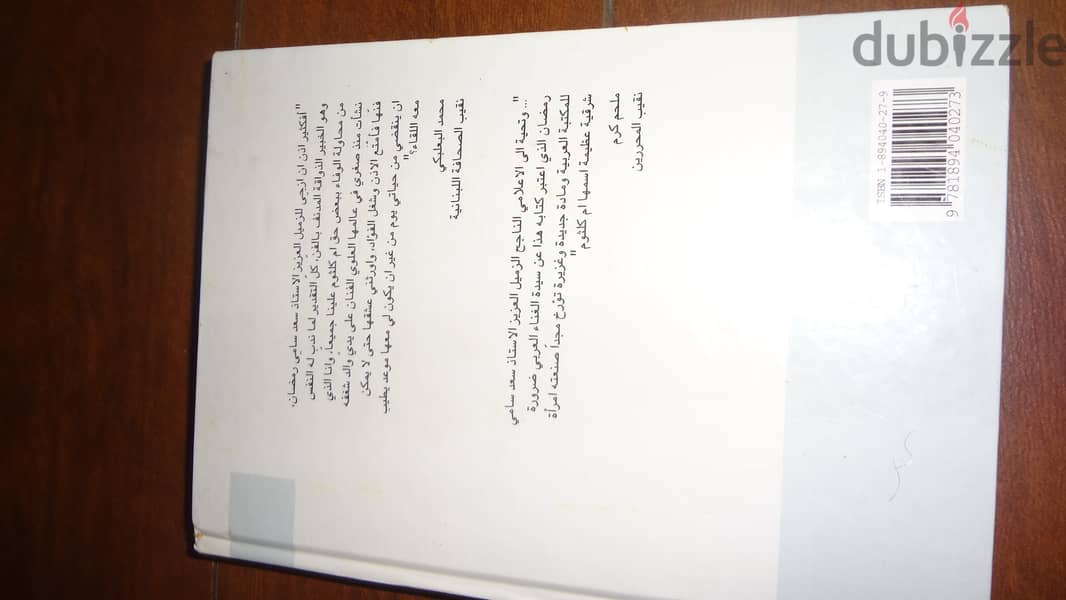 "أفكثير اذن ان ازجي للزميل العزيز الاستاذ سعد سامي رمضان،
وهو الخبير الذواقة المدنف بالفن، كلّ التقدير لما ندب له النفس
من محاولة الوفاء ببعض حق ام كلثوم علينا جميعاً، وانا الذي
نشأت منذ صغري في عالمها العلوي الفنان على يديّ والد شغفه
فنّها فأمتع الاذن وشغل الفؤاد، واورثني عشقها حتى لا يمكن
ان ينقضي من حياتي يوم من غير ان يكون لي معها موعد يطيب
معه اللقاء؟"
محمد البعلبكي
نقيب الصحافة اللبنانية
"... وتحية الى الاعلامي الناجح الزميل العزيز الاستاذ سعد سامي
رمضان الذي اعتبر كتابه هذا عن سيدة الغناء العربي ضرورة
للمكتبة العربية ومادة جديدة وغزيرة تؤرخ مجداً صنعته امرأة
شرقية عظيمة اسمها ام كلثوم"
ملحم كرم
نقيب المحررين
ISBN 1-894040-27-9
9 781894 040273
dubizzle